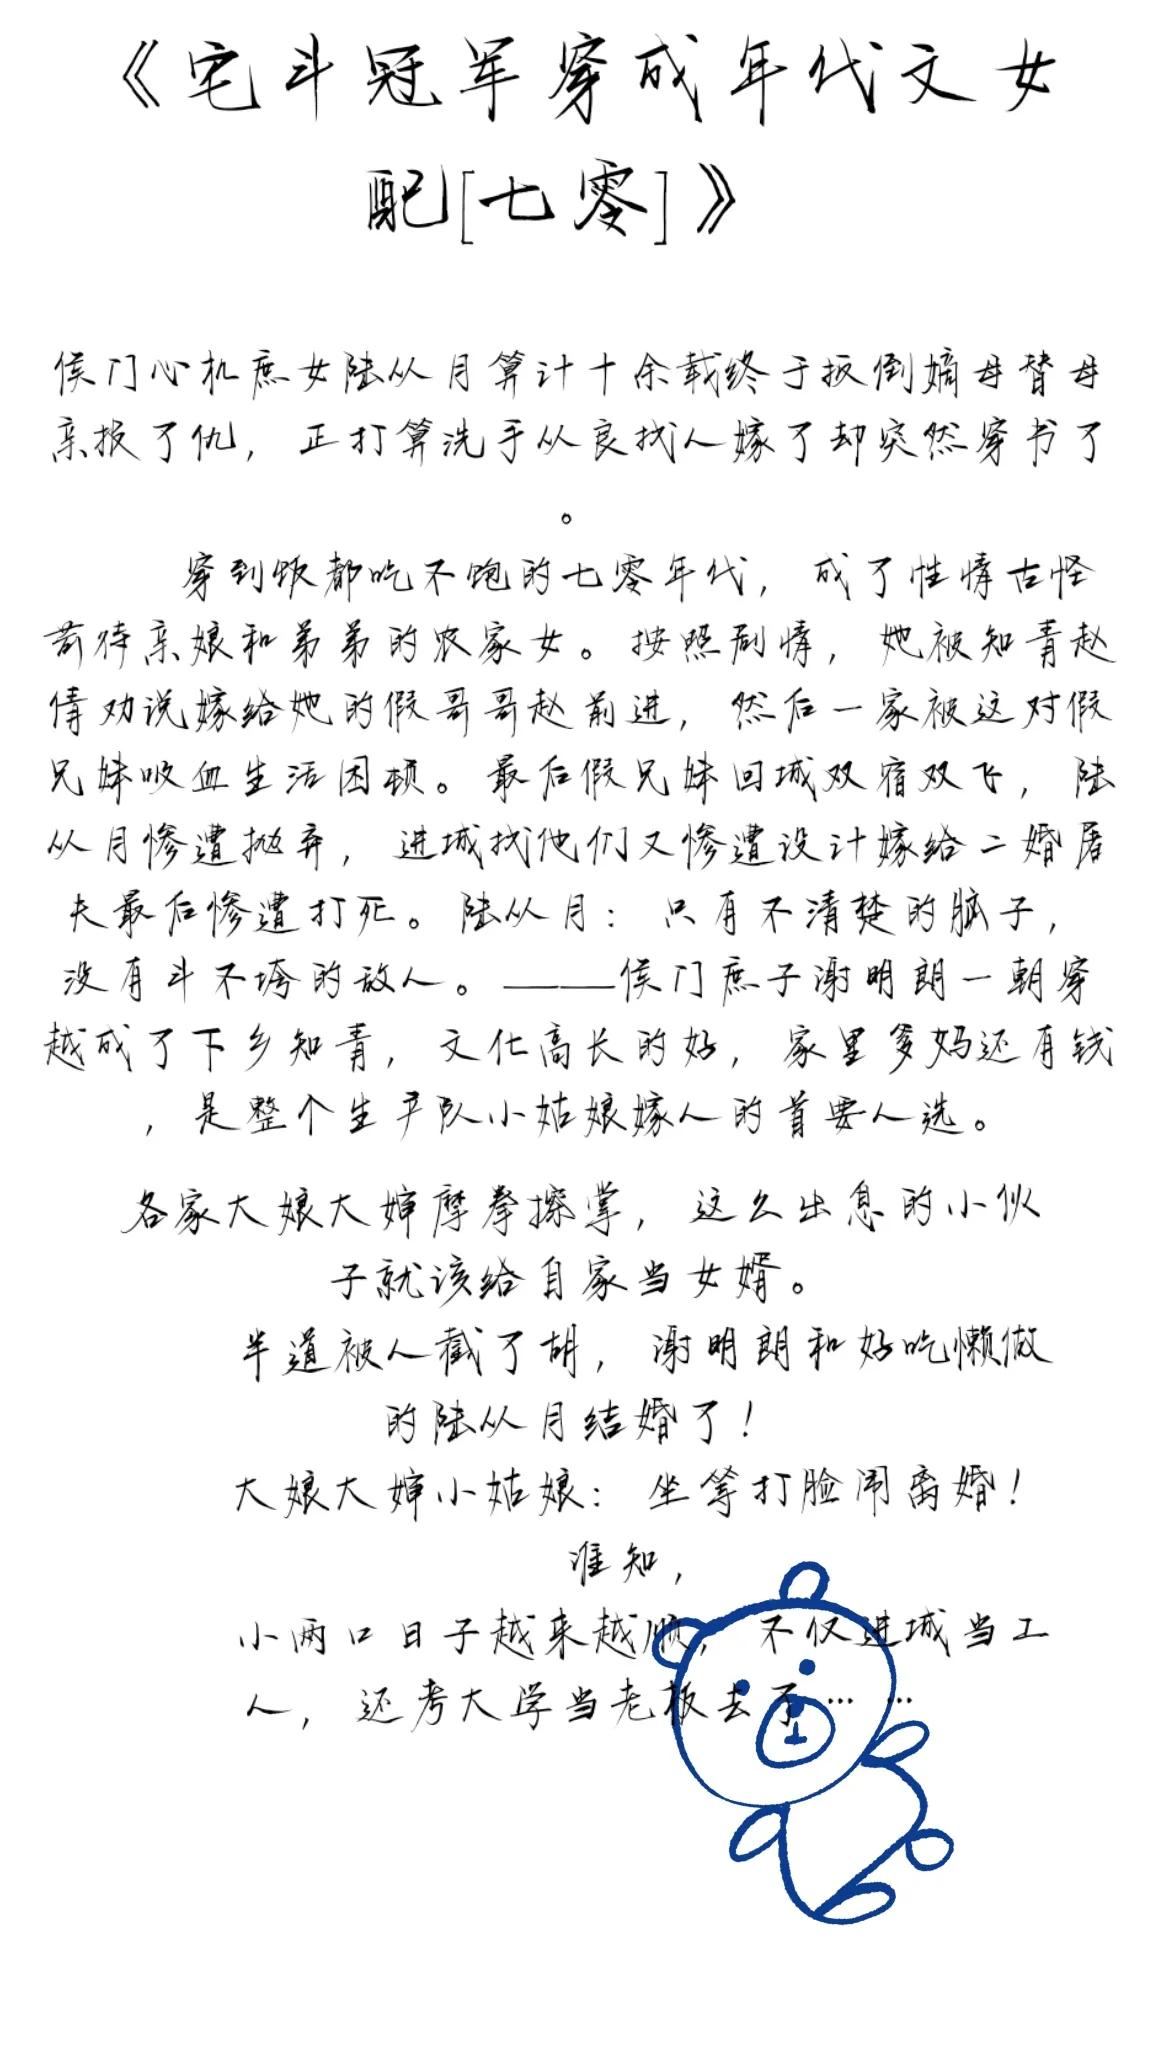 《宅斗冠军穿成年代文女
配[七零]》
侯门心机庶女陆从月算计十余载终于扳倒嫡母替母
亲报了仇，正打算洗手从良找人嫁了却突然穿书了
。
穿到饭都吃不饱的七零年代，成了性情古怪
苛待亲娘和弟弟的农家女。按照剧情，她被知青赵
倩劝说嫁给她的假哥哥赵前进，然后一家被这对假
兄妹吸血生活困顿。最后假兄妹回城双宿双飞，陆
从月惨遭抛弃，进城找他们又惨遭设计嫁给二婚屠
夫最后惨遭打死。陆从月：只有不清楚的脑子，
没有斗不垮的敌人。——侯门庶子谢明朗一朝穿
越成了下乡知青，文化高长的好，家里爹妈还有钱
，是整个生产队小姑娘嫁人的首要人选。
各家大娘大婶摩拳擦掌，这么出息的小伙
子就该给自家当女婿。
半道被人截了胡，谢明朗和好吃懒做
的陆从月结婚了！
大娘大婶小姑娘：坐等打脸闹离婚！
谁知，
小两口日子越来越顺，不仅进城当工
人，还考大学当老板去了……